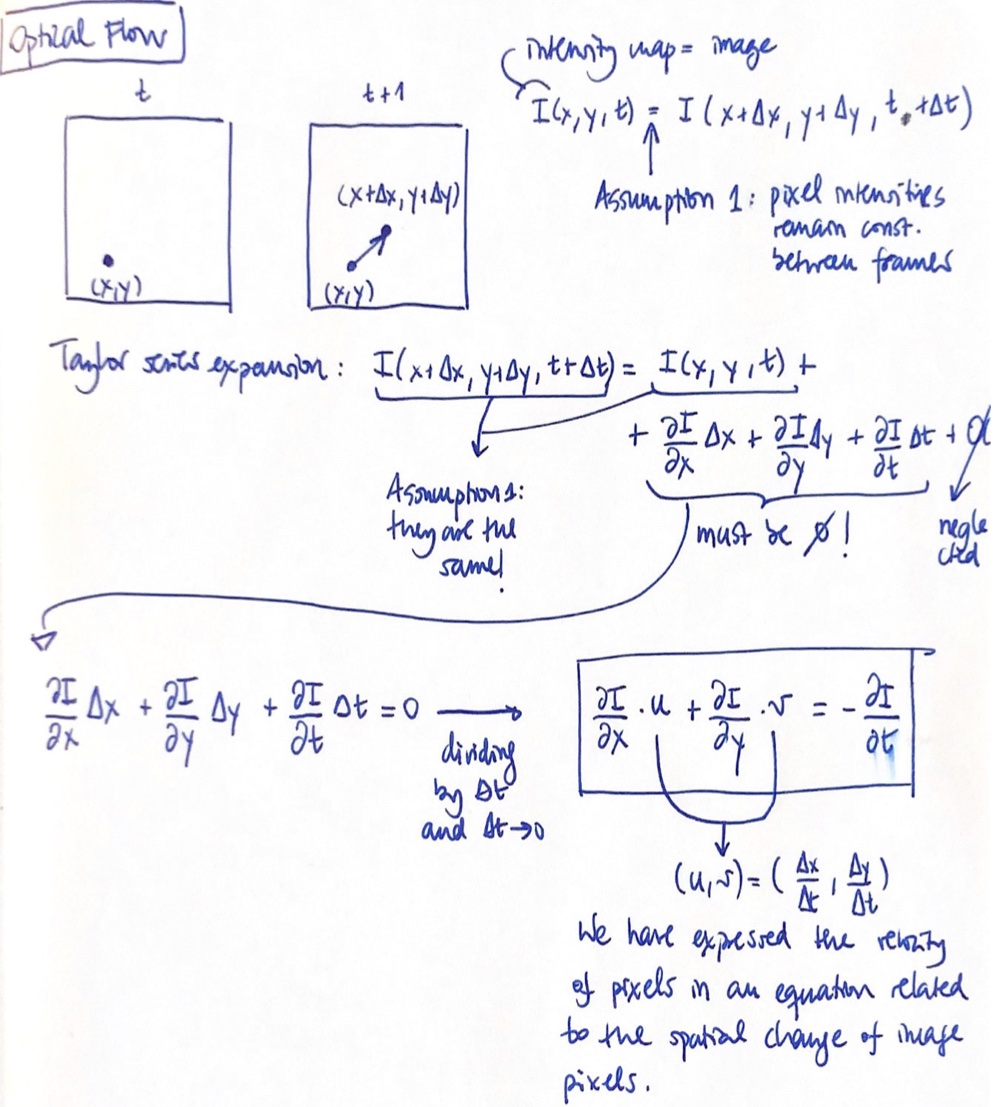 Optical Flow
t
t+1
(x,y)
(x+Δx, y+Δy)
(x,y)
intensity map = image
I(x,y,t) = I(x+Δx, y+Δy, t+Δt)
Assumption 1: pixel intensities
remain const.
between frames
Taylor series expansion: I(x+Δx, y+Δy, t+Δt) = I(x,y,t) +
+ ∂I/∂x Δx + ∂I/∂y Δy + ∂I/∂t Δt +
Assumption 1:
they are the
same!
must be ∅!
negle
cted
∂I/∂x Δx + ∂I/∂y Δy + ∂I/∂t Δt = 0
dividing
by Δt
and Δt→0
∂I/∂x · u + ∂I/∂y · v = - ∂I/∂t
(u,v) = (Δx/Δt, Δy/Δt)
We have expressed the velocity
of pixels in an equation related
to the spatial change of image
pixels.